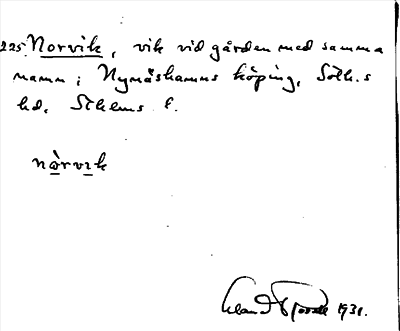 225. Norvik, vik vid gården med samma
namn i Nynäshamns köping, Soth.s
hd, Sthlms l.
nòrvik
1931.